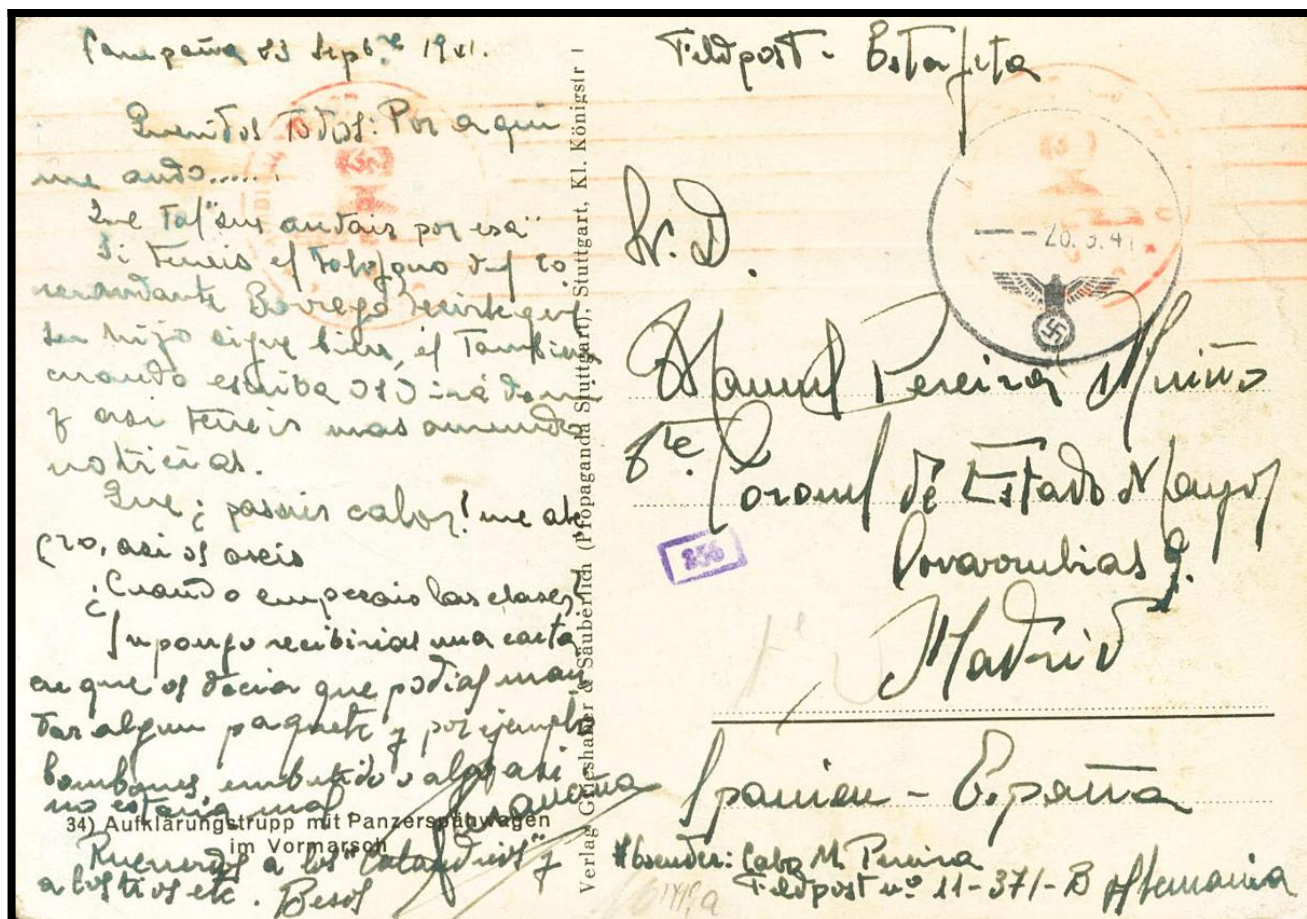 Campaña 23 Sepbre 1941.
Queridos Todos: Por aqui
me ando.....
Que Tal "sus andais por esa"
Si teneis el telefono del co
mandante Borrego decirle que
su hijo sigue bien, el Tambien
cuando escriba os
y asi teneis mas amenudo
noticias.
Que ¡pasais calor! me ale
gro, asi os aseis
¿Cuando empezais las clases?
Supongo recibirias una carta
en que os decia que podiais man
dar algun paquete y por ejemplo
bombones, embutido o algo asi
no estaria mal
34) Aufklärungstrupp mit Panzerspähwagen
im Vormarsch
Recuerdos a los y
a los tios etc. Besos
Verlag Grieshaber & Säuberlich (Propaganda Stuttgart), Stuttgart, Kl. Königstr 1
Feldpost - Estafeta
20.3.41
Sr. D.
Manuel Pereira Muiño
Coronel de Estado Mayor
256
Covarrubias 9.
Madrid
Spanien - España
Absender: Cabo M. Pereira
Feldpost nº 11-371-B Alemania